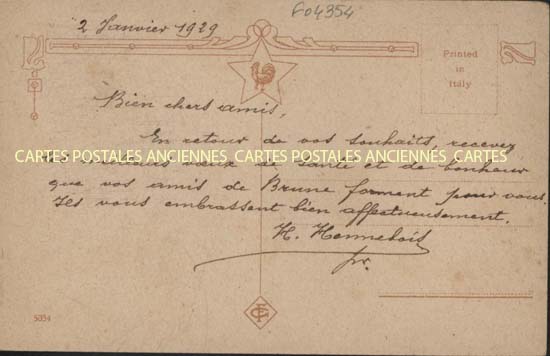 2 Janvier 1929
F04354
Printed
in
Italy
Bien chers amis,
En retour de vos souhaits, recevez
CARTES POSTALES ANCIENNES CARTES POSTALES ANCIENNES CARTES
vœux de santé et de bonheur
que vos amis de Brune forment pour vous.
Ils vous embrassent bien affectueusement.
H. Hennebois
5034